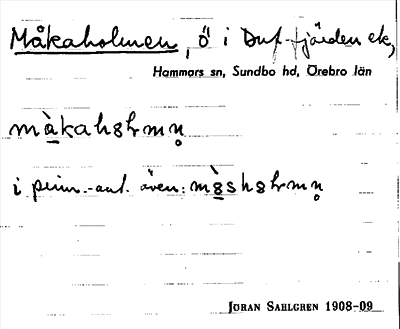 Måkaholmen, ö i Duf-fjärden ek,
Hammars sn, Sundbo hd, Örebro län
mà̱kahəɫmn̥
i prim.-ant. även: mə̱̀shəɫmn̥
JÖRAN SAHLGREN 1908-09